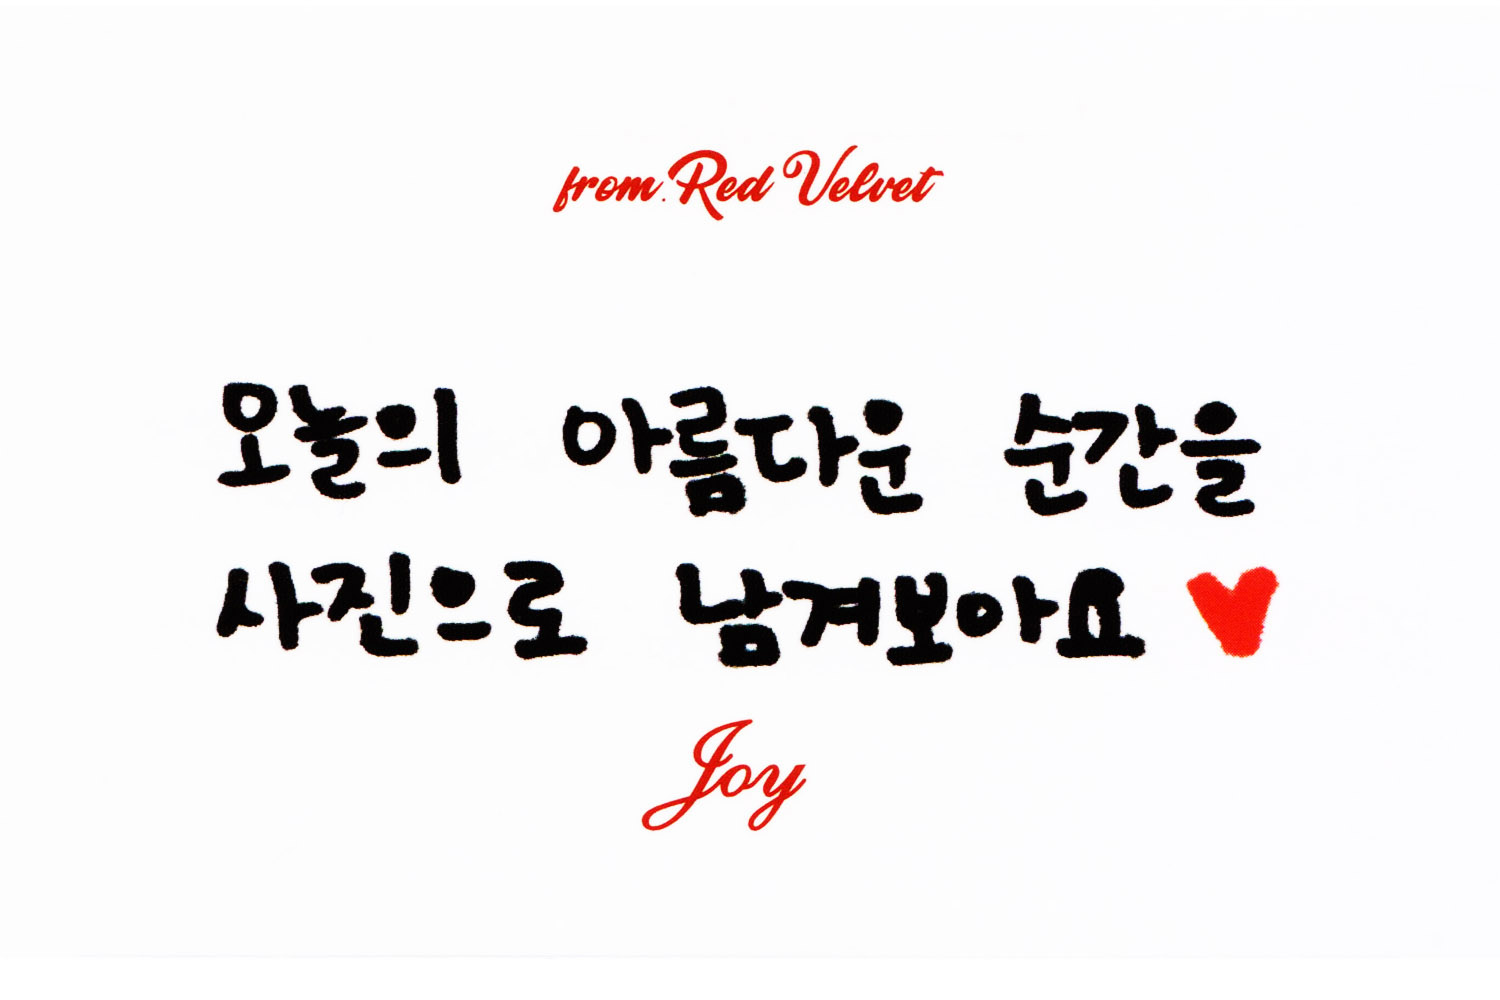 from. Red Velvet
오늘의 아름다운 순간을
사진으로 남겨보아요 ♥
Joy